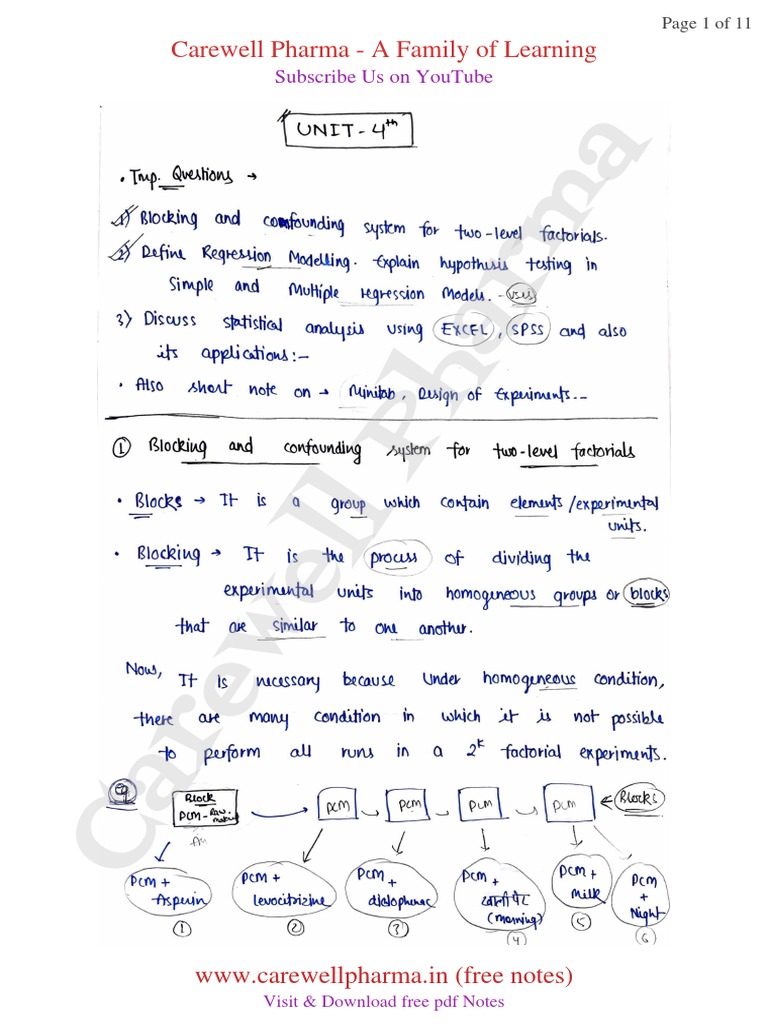 Page 1 of 11
Carewell Pharma - A Family of Learning
Subscribe Us on YouTube
UNIT - 4th
• Imp. Questions →
1) Blocking and confounding system for two-level factorials.
2) Define Regression Modelling. Explain hypothesis testing in
Simple and Multiple regression Models.
3) Discuss statistical analysis using EXCEL, SPSS and also
its applications:-
• Also short note on → Minitab, Design of Experiments.--
① Blocking and confounding system for two-level factorials
• Blocks → It is a group which contain elements/experimental
units.
• Blocking → It is the process of dividing the
experimental units into homogeneous groups or blocks
that are similar to one another.
Now, It is necessary because under homogeneous condition,
there are many condition in which it is not possible
to perform all runs in a 2k factorial experiments.
eg Block PCM PCM PCM PCM ← Blocks
PCM - Raw.
PCM + PCM + PCM + PCM + PCM + PCM +
Asperin levocitrizine diclophenac खालीपेट Milk Night
(morning)
① ② ③ ④ ⑤ ⑥
Carewell Pharma
www.carewellpharma.in (free notes)
Visit & Download free pdf Notes